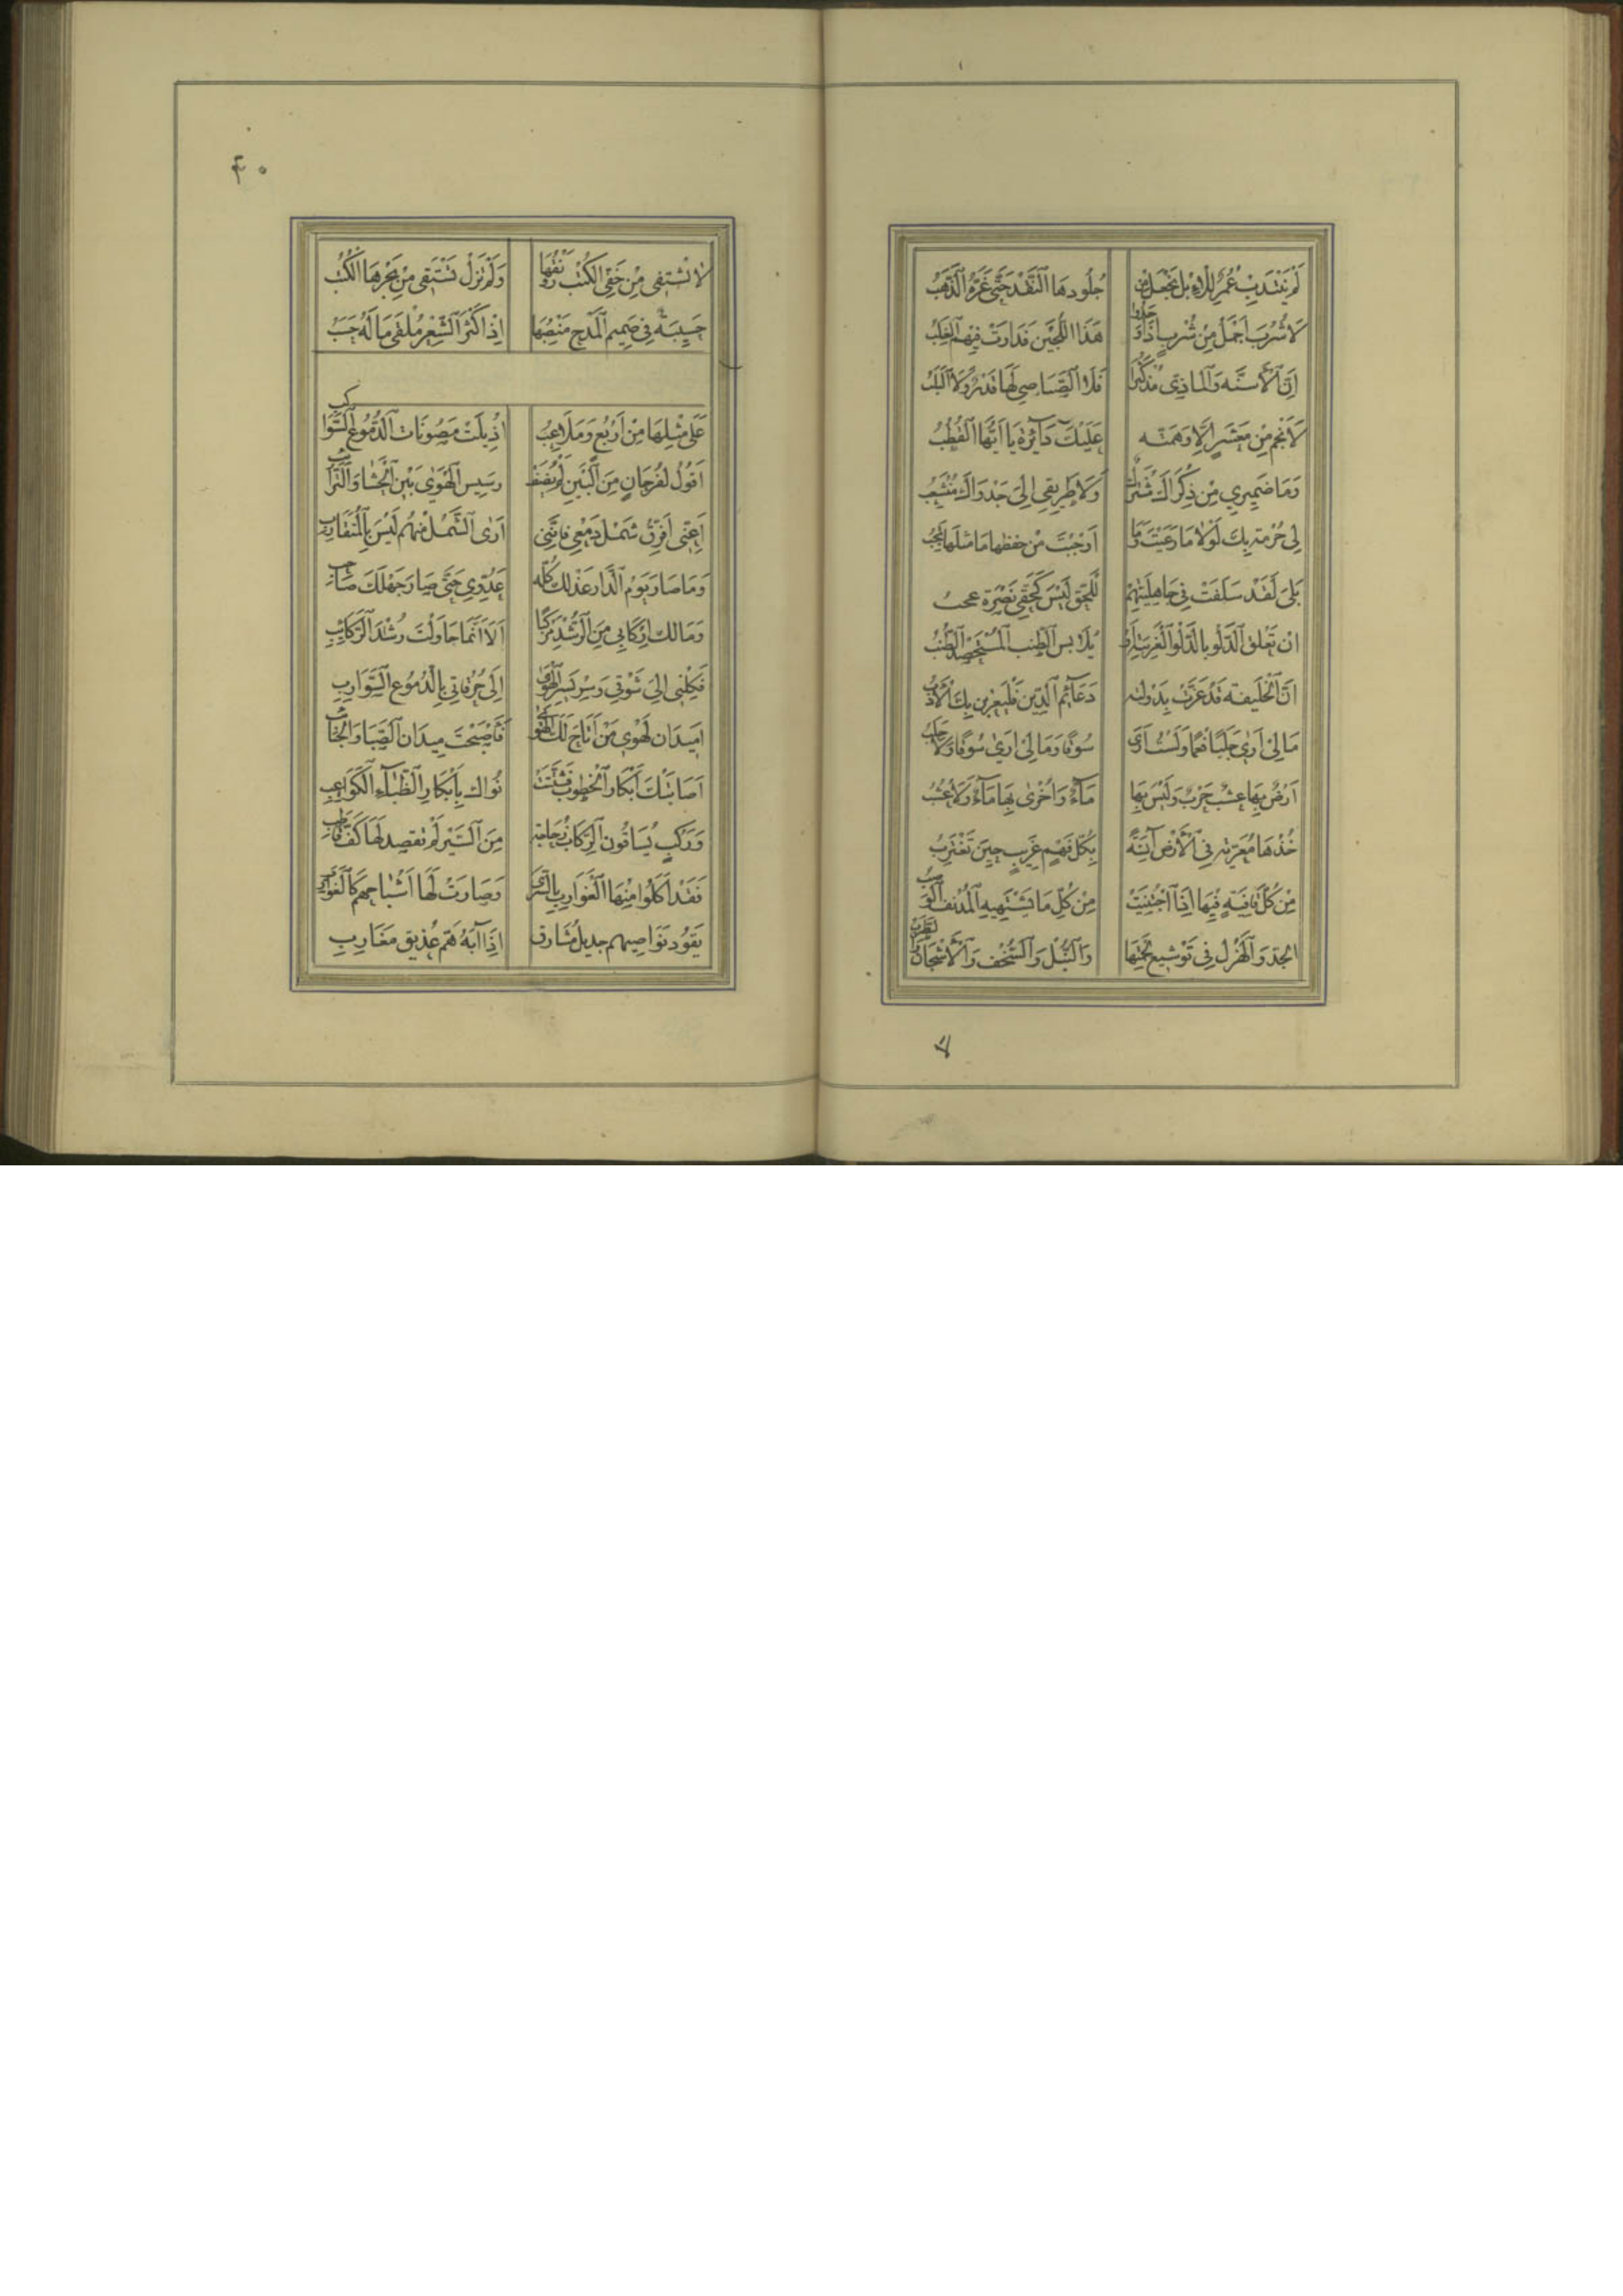 لَمْ يَنْتَدِبْ عُمَرٌ لِلْاِبِلِ يَجْعَلُ مِنْ جُلُودِهَا النَّقْدَ حَتَّى عَزَّهُ الذَّهَبُ
لَا شُرْبَ اَجْمَلُ مِنْ شُرْبٍ هَذَا اللُّجَيْنَ فَدَارَتْ فِيهِمُ العُلَبُ
اِنَّ الْاَسِنَّه وَالْمَاذِىَّ مُذْكَثُرَا فَلَا الصَّيَاصِي لَهَا قَدْرٌ وَلَا الْيَلَبُ
لَا نَجْمَ مِنْ مَعْشَرٍ اِلَّا وَهِمَّتُه عَلَيْكَ دَآئِرَةٌ يَا اَيُّهَا القُطُبُ
وَمَا ضَمِيرِي مِنْ ذِكْرَاكَ مُشْتَرَكٌ وَلَا طَرِيقِي اِلَى جَدْوَاكَ مُنْشَعِبُ
لِى حُرْمَة بِكَ لَوْلَا مَا رَعَيْتَ وَمَا اَوْجَبْتَ مِنْ حِفظها مَا خلتها تَجِبُ
بَلَى لَقَدْ سَلَفَتْ فِى جَاهِلِيَّتِهِمْ لِلْحَقِّ لَيْسَ كَحَقِّى نَصْرَة عجبُ
اَنْ تَعْلَقَ الدَّلْو بِالدَّلْوِ الْغَرِيبَةِ اَوْ يُلَابِسَ الطُّنُبَ الْمُسْتَحْصِدَ الطُّنُبُ
اِنَّ الْخَلِيفَة قَدْ عَزَّتْ بِدَوْلَتِه دَعَآئِمُ الدِّينِ فَلْيَعْزِزْ بِكَ الْاَدَبُ
مَالِى اَرَى جَلَبًا فَعْمًا وَلَسْتُ اَرَى سُوقًا وَمَا لِى اَرَىٰ سُوقًا وَلَا جَلَبُ
اَرْضٌ بِهَا عُشْبٌ جَرْفٌ وَلَيْسَ بِهَا مَآءٌ وَاُخْرٰى بِهَا مَآءٌ وَلَا عُشُبُ
خُذْهَا مُغَرِّبَة فِى الْاَرْضِ آنِسَةً بِكُلِّ فَهْمٍ غَرِيبٍ حِينَ تَغْتَرِبُ
مِنْ كُلِّ قَافِيَةٍ فِيهَا اِذَا اجْتُنِيَتْ مِنْ كُلِّ مَا يَشْتَهِيهِ الْمُدْنَفُ الْوَصِبُ
الجِدّ وَالْهَزْل فِى تَوْشِيعِ لُحْمَتِهَا وَالنُّبْل وَالسُّخْف وَالْاَشْجَان وَالطَّرَبُ
٤٠
لَا تُسْتَقى مِنْ خَفِيِّ الكُتْبِ رَوْنَقُهَا وَلَمْ تَزَلْ تَسْتَقِى مِنْ بَحْرِهَا الْكُتُبُ
حَسِيبَة فِى صَمِيمِ الْمَدْحِ مَنْصِبُهَا اِذْ اَكْثَر الشِّعْرِ مُلْقًى مَا لَهُ حَسَبُ
عَلَى مِثْلِهَا مِنْ اَرْبُعٍ وَمَلَاعِبُ اُذِيلَتْ مَصُونَات الدُّمُوعِ السَّوَاكِب
اَقُولُ لِقُرْحَانٍ مِنَ الْبَيْنِ لَمْ يُضِفْ رَسِيس الْهَوٰى بَيْنَ الْحَشَا وَالتَّرَائِب
اَعِنِّى اُفَرِّقْ شَمْلَ دَمْعِى فَاِنَّنِى اَرَى الشَّمْلَ مِنْهُم لَيْسَ بِالْمُتَقَارِبِ
وَمَا صَار يَوْم الدَّارِ عَذْلُكَ كُلُّه عَدُوِّى حَتَّى صَار جَهْلُكَ صَاحِبِ
وَمَا بِكَ اِرْكَابِى مِنَ الرُّشْدِ مَرْكَبًا اَلَا اِنَّمَا حَاوَلْتَ رُشْدَ الرَّكَائِبِ
فَكِلْنِى اِلَى شَوْقِى وَسِرْ يَسِرِ الْهَوٰى اِلَى حُرُقَاتِى بِالدُّمُوعِ السَّوَارِبِ
اَمَيْدَانَ لَهْوِى مَنْ اَتَاحَ لَكَ الْبِلَى فَاَصْبَحْتَ مِيدَان الصَّبَا وَالْجَنَائِب
اَصَابَتْكَ اَبْكَار الْخُطُوبِ فَشَتَّتَتْ نَوَاك بِاَبْكَارِ الظِّبَآءِ الْكَوَاعِبِ
وَرَكْبٍ يُسَاقُونَ الرِّكَابَ زُجَاجَة مِنَ السَّيْرِ لَمْ تَقْصِد لَهَا كَفُّ قَاطِبِ
فَقَدْ اَكَلُوا مِنْهَا الْغَوَارِبَ بِالسُّرَى وَصَارَتْ لَهَا اَشْبَاحهُم كَالْغَوَارِبِ
يَقُودُ نَوَاصِيهِم جديل مَشَارِق اِذَا آبَهُ هَمّ عُذَيْقُ مَغَارِبِ